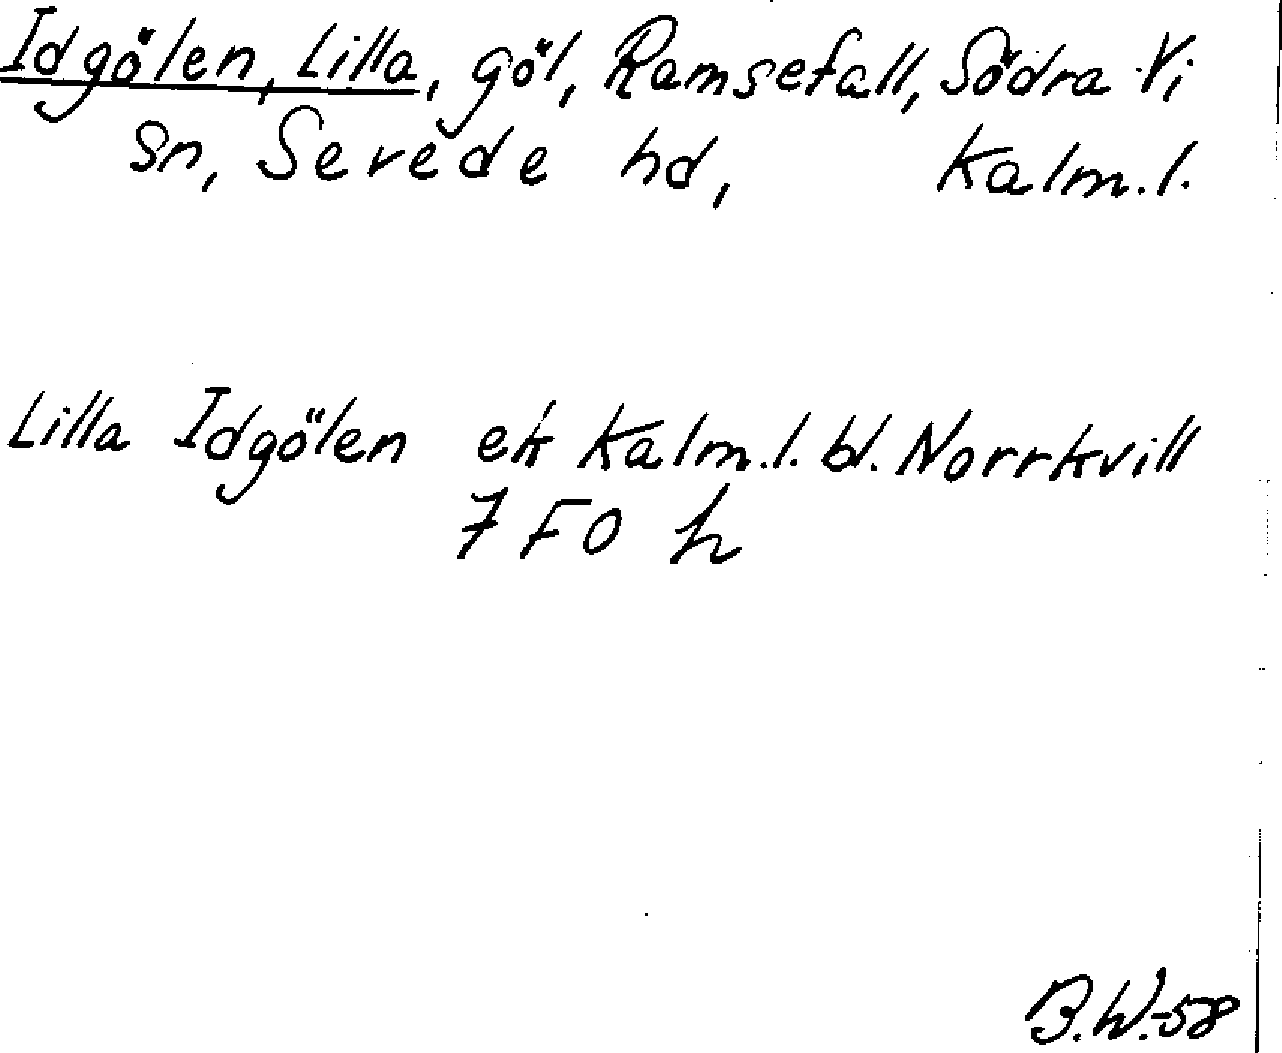 Idgölen, Lilla, göl, Ramsefall, Södra Vi
sn, Sevede hd, Kalm.l.
Lilla Idgölen ek Kalm.l. bl. Norrkvill
7 F0 h
B.W.-58